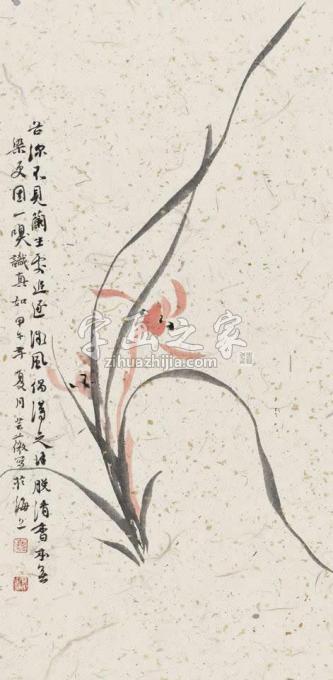 谷深不見蘭生處追逐微風偶得之解脱清香本無
染更因一嗅識真如甲午年夏月芸薇写於海上
字画之家
zihuazhijia.com